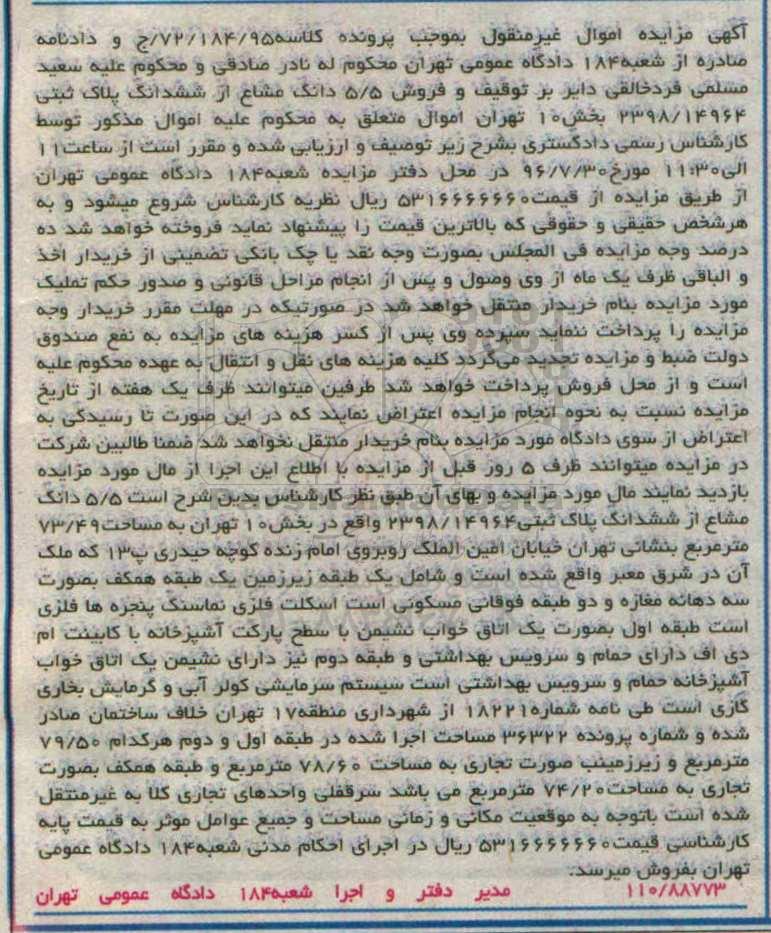 آگهی مزایده اموال غیرمنقول بموجب پرونده کلاسه۷۲/۱۸۴/۹۵/ج و دادنامه
صادره از شعبه۱۸۴ دادگاه عمومی تهران محکوم له نادر صادقی و محکوم علیه سعید
مسلمی فردخالقی دایر بر توقیف و فروش ۵/۵ دانگ مشاع از ششدانگ پلاک ثبتی
۲۳۹۸/۱۴۹۶۴ بخش۱۰ تهران اموال متعلق به محکوم علیه اموال مذکور توسط
کارشناس رسمی دادگستری بشرح زیر توصیف و ارزیابی شده و مقرر است از ساعت۱۱
الی۱۱:۳۰ مورخ۹۶/۷/۳۰ در محل دفتر مزایده شعبه۱۸۴ دادگاه عمومی تهران
از طریق مزایده از قیمت۵۳۱۶۶۶۶۶۶۰ ریال نظریه کارشناس شروع میشود و به
هرشخص حقیقی و حقوقی که بالاترین قیمت را پیشنهاد نماید فروخته خواهد شد ده
درصد وجه مزایده فی المجلس بصورت وجه نقد یا چک بانکی تضمینی از خریدار اخذ
و الباقی ظرف یک ماه از وی وصول و پس از انجام مراحل قانونی و صدور حکم تملیک
مورد مزایده بنام خریدار منتقل خواهد شد در صورتیکه در مهلت مقرر خریدار وجه
مزایده را پرداخت ننماید سپرده وی پس از کسر هزینه های مزایده به نفع صندوق
دولت ضبط و مزایده تجدید می‌گردد کلیه هزینه های نقل و انتقال به عهده محکوم علیه
است و از محل فروش پرداخت خواهد شد طرفین میتوانند ظرف یک هفته از تاریخ
مزایده نسبت به نحوه انجام مزایده اعتراض نمایند که در این صورت تا رسیدگی به
اعتراض از سوی دادگاه مورد مزایده بنام خریدار منتقل نخواهد شد ضمنا طالبین شرکت
در مزایده میتوانند ظرف ۵ روز قبل از مزایده با اطلاع این اجرا از مال مورد مزایده
بازدید نمایند مال مورد مزایده و بهای آن طبق نظر کارشناس بدین شرح است ۵/۵ دانگ
مشاع از ششدانگ پلاک ثبتی۲۳۹۸/۱۴۹۶۴ واقع در بخش۱۰ تهران به مساحت۷۳/۴۹
مترمربع بنشانی تهران خیابان امین الملک روبروی امام زنده کوچه حیدری پ۱۳ که ملک
آن در شرق معبر واقع شده است و شامل یک طبقه زیرزمین یک طبقه همکف بصورت
سه دهانه مغازه و دو طبقه فوقانی مسکونی است اسکلت فلزی نماسنگ پنجره ها فلزی
است طبقه اول بصورت یک اتاق خواب نشیمن با سطح پارکت آشپزخانه با کابینت ام
دی اف دارای حمام و سرویس بهداشتی و طبقه دوم نیز دارای نشیمن یک اتاق خواب
آشپزخانه حمام و سرویس بهداشتی است سیستم سرمایشی کولر آبی و گرمایش بخاری
گازی است طی نامه شماره۱۸۲۲۱ از شهرداری منطقه۱۷ تهران خلاف ساختمان صادر
شده و شماره پرونده ۳۶۳۲۲ مساحت اجرا شده در طبقه اول و دوم هرکدام ۷۹/۵۰
مترمربع و زیرزمینب صورت تجاری به مساحت ۷۸/۶۰ مترمربع و طبقه همکف بصورت
تجاری به مساحت۷۴/۲۰ مترمربع می باشد سرقفلی واحدهای تجاری کلا به غیرمنتقل
شده است باتوجه به موقعیت مکانی و زمانی مساحت و جمیع عوامل موثر به قیمت پایه
کارشناسی قیمت۵۳۱۶۶۶۶۶۶۰ ریال در اجرای احکام مدنی شعبه۱۸۴ دادگاه عمومی
تهران بفروش میرسد.
۱۱۰/۸۸۷۷۳ مدیر دفتر و اجرا شعبه۱۸۴ دادگاه عمومی تهران